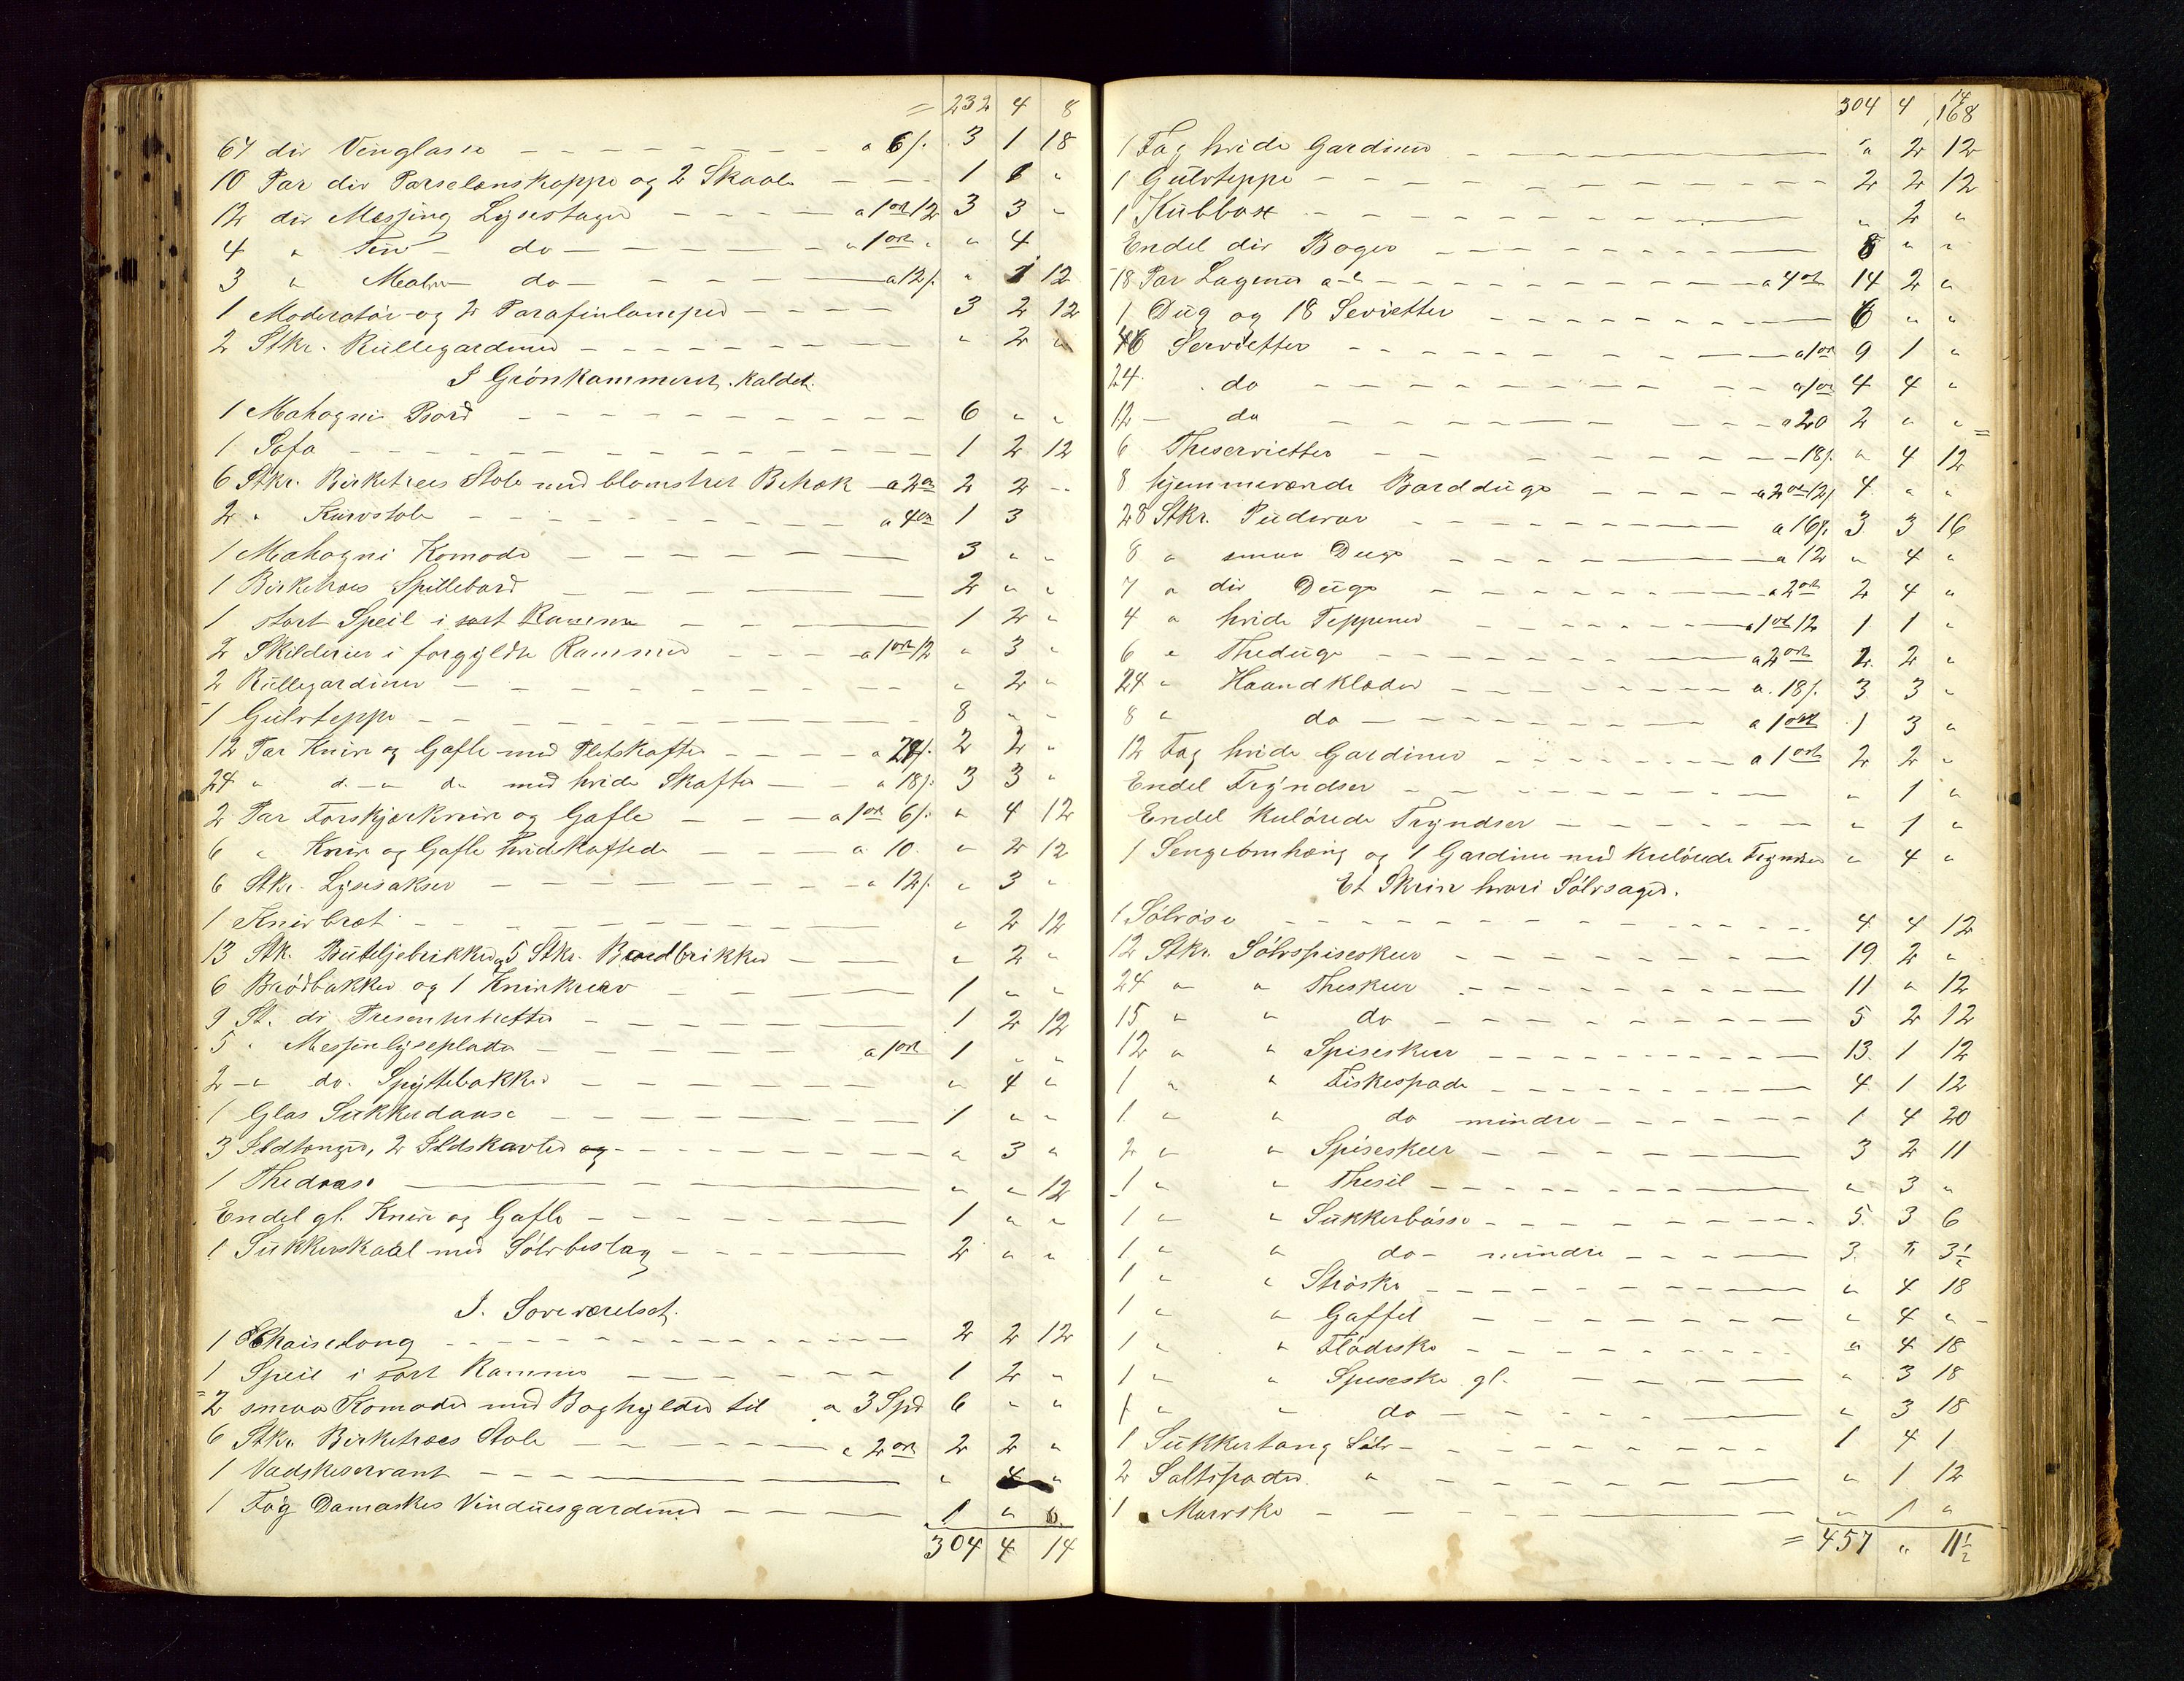 = 232 4 8
67 div Vinglasse a 6/. 3 1 18
10 Par div Parselænskoppe og 2 Skaale 1 1 "
12 div Messing Lysestager a 1 ort 12 3 3 "
4 " Tin do a 1 ort " " 4
3 " do a 12/. " 1 12
1 Moderatør- og 2 Parafinlamper 3 2 12
2 Stkr. Rullegardiner " 2 "
I Grønkammeret kaldet.
1 Mahogni Bord 6 " "
1 Sofa 1 2 12
6 Stkr. Birketræes Stole med blomstret Betræk a 2 ort 2 2 "
2 " Kurvstole a 4 ort 1 3
1 Mahogni Komode 3 " "
1 Birketræes Spillebord 2 " "
1 stort Speil i sort Ramme 1 2 "
2 Skilderier i forgyldte Rammer a 1 ort 12 " 3 "
2 Rullegardiner " 2 "
1 Gulvteppe 8 " "
12 Par Knive og Gafle med Pletskafter a 24/. 2 2 "
24 " d. " do med hvide Skafter a 18/. 3 3 "
2 Par Forskjærknive og Gafle a 1 ort 6/. " 4 12
6 " Knive og Gafle hvidskaftede a 10. " 2 12
6 Stkr. Lysesakser a 12/. " 3 "
1 Knivbræt " 2 12
13 Stk. Buteljebrikker og 5 Stkr. Bordbrikker " 2 "
6 Brødbakker og 1 Knivkurv 1 " "
9 St. div Presenterbretter 1 2 12
5 " Messinlyseplader a 1 ort 1 " "
2 " do. Spyttebakker " 4 "
1 Glas Sukkerdaase 1 " "
3 Ildtonger, 2 Ildskavler og " 3 "
1 Thedaase " " 12
Endel gl. Knive og Gafle 1 " "
1 Sukkerskaal med Sølvbeslag 2 " "
I. Soveværelset.
1 Chaiselong 2 2 12
1 Speil i sort Ramme 1 2 "
2 smaa Komoder med Boghylder til a 3 Spd 6 " "
6 Stkr. Birketræes Stole a 2 ort 2 2 "
1 Vadskeservant " 4 "
1 Fag Damaskes Vinduesgardiner 1 " "
304 4 14
304 4 14 168
1 Fag hvide Gardiner " 2 12
1 Gulvteppe 2 2 12
1 Kubbost " 2 "
Endel div Bøger 8 " "
18 Par Lagener a 4 ort 14 2 "
1 Dug og 18 Servietter 6 " "
46 Servietter a 1 ort 9 1 "
24 do a 1 ort 4 4 "
12 do a 20 2 " "
6 Theservietter 18/. " 4 12
8 hjemmevævede Bordduge a 2 ort 12/. 4 " "
28 Stkr. Pudevar a 16/. 3 3 16
8 " smaa Duge a 12 " 4 "
7 " div Duge a 2 ort 2 4 "
4 " hvide Teppener a 1 ort 12 1 1 "
6 " Theduge a 2 ort 2 2 "
24 " Haandklæder a 18/. 3 3 "
8 " do a 1 ort 1 3 "
12 Fag hvide Gardiner a 1 ort 2 2 "
Endel Fryndser " 1 "
Endel kulørede Fryndser " 1 "
1 Sengeomhæng og 1 Gardine med kulørede Frynser " 4 "
Et Skrin hvori Sølvsager.
1 Sølvøse 4 4 12
12 Stkr. Sølvspiseskeer 19 2 "
24 " " Theskeer 11 " 12
15 " " do 5 2 12
12 " " Spiseskeer 13 1 12
1 " " Fiskespade 4 1 12
1 " " do mindre 1 4 20
2 " " Spiseskeer 3 2 11
1 " " Thesil " 3 "
1 " " Sukkerbøsse 5 3 6
1 " " do mindre 3 " 3½
1 " " Strøske " 4 18
1 " " Gaffel " 4 "
1 " " Flødeske " 4 18
1 " " Spiseske gl. " 3 18
1 " " do " 3 18
1 Sukkertang Sølv 1 4 1
2 Saltspader " " 1 12
1 Marvske " 1 "
= 457 " 11½